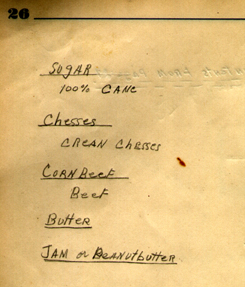 26
SUGAR
100% CANE
Chesses
CREAN Chesses
CORNBeef
Beef
Butter
JAM or PeANutbutter